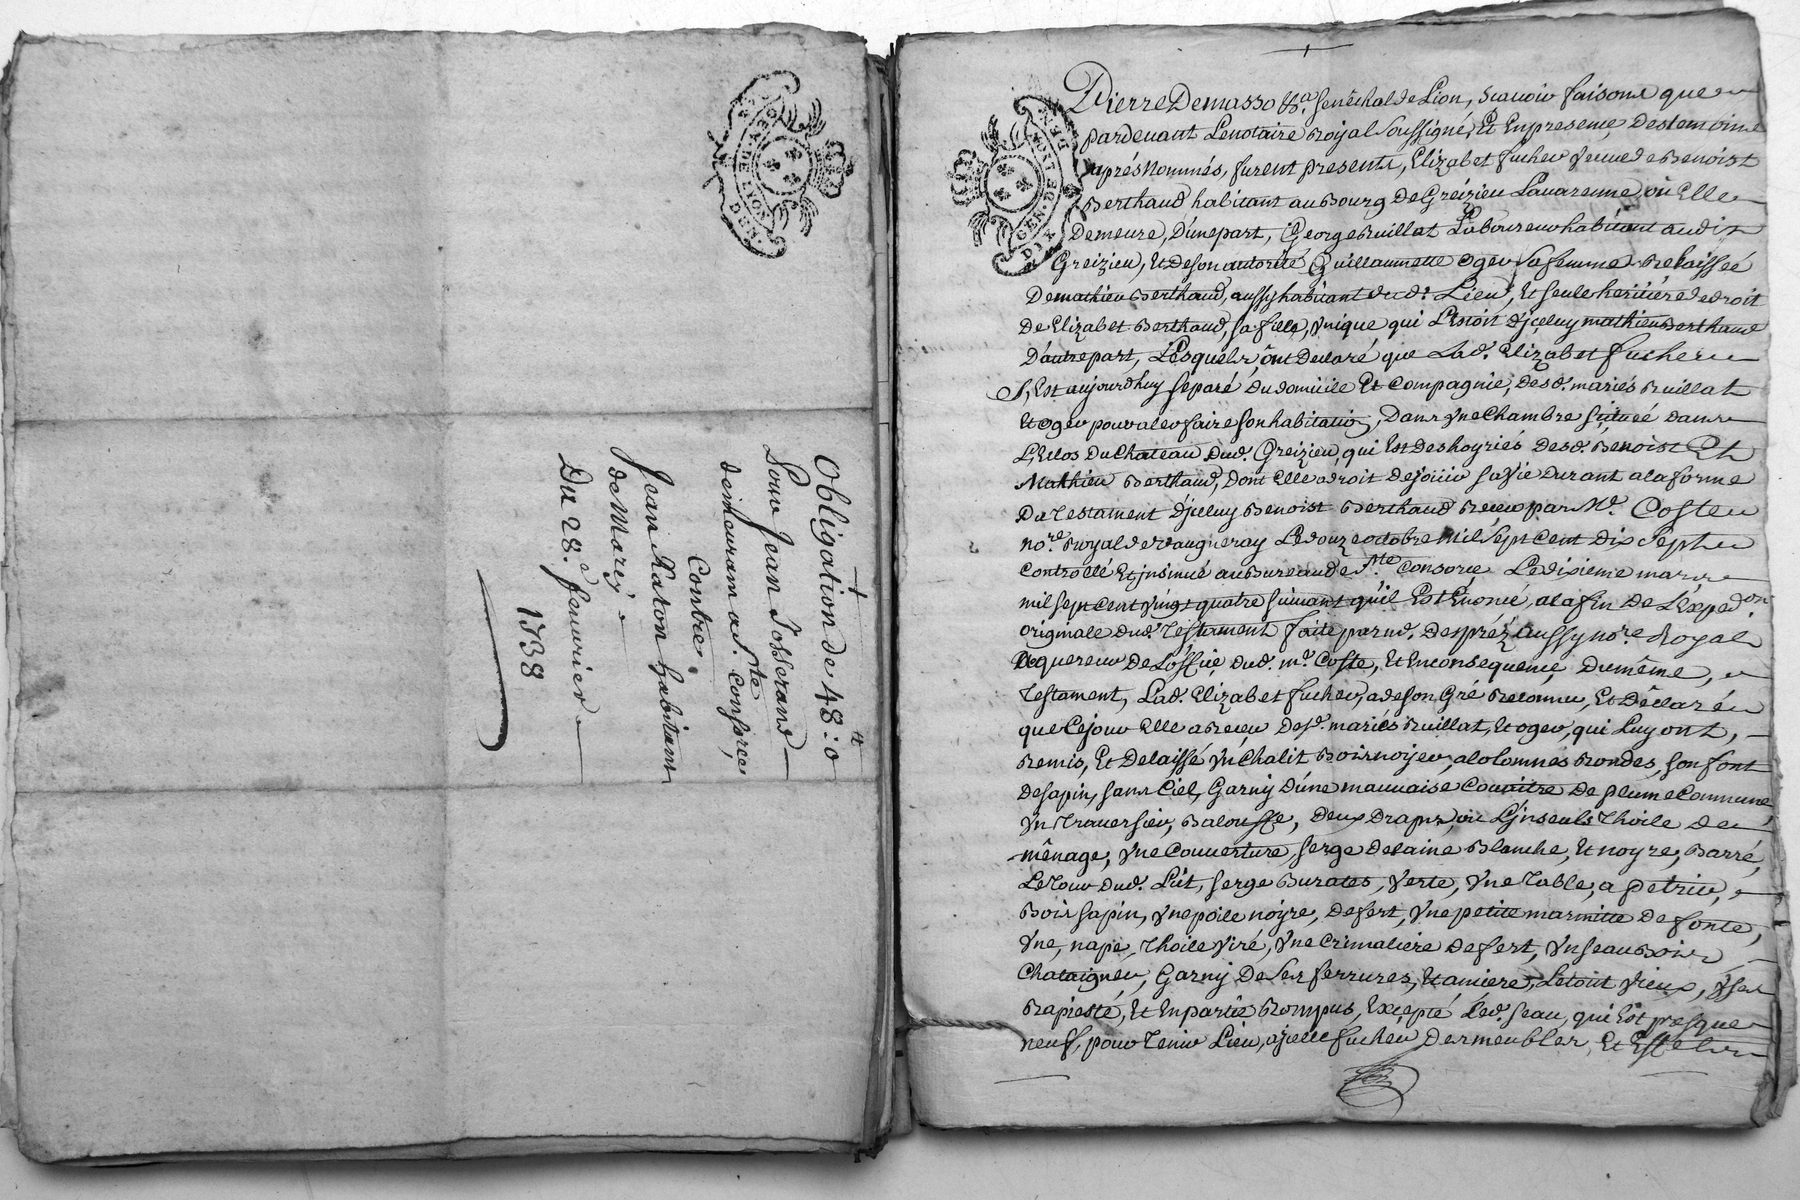 GEN. DE LION
Obligation de 48:0ᵗᵗ
Pour Jean Josserand
demeurant a Sᵗᵉ Consorce
Contre
Jean Raton habitant
de Marcy
Du 28.ᵉ Janvier
1738
GEN. DE LION
DIX
Pierre Demasso &ᵃ. Senêchal de Lion, Sçavoir faisons que
pardevant Lenotaire Royal Soussigné, Et Enpresence Destemoins
aprésNommés, furent presents, Elizabet fucher veuve de Benoist
Berthaud habitant au Bourg De Greizieu Lavarenne, où Elle
Demeure, D'unepart, George Ruillat Laboureur habitant audit
Greizieu, Et De son autorité Guillaumette Oger sa femme Relaissée
De mathieu Berthaud, aussy habitant dud. Lieu, Et seule heritiére de droit
De Elizabet Berthaud, sa fille, unique qui L'Etoit d'jceluy mathieu Berthaud
D'autrepart, Lesquels, ônt Declaré que Lad. Elizabet fucher
S'Est aujourd'huy separé du domicile Et Compagnie, desd. mariés Ruillat
Et Oger pour aler faire son habitation, Dans une Chambre scituéé dans
L'Eclos Du Chateau Dud. Greizieu, qui Est des hoyriés Desd. Benoist Et
Mathieu Berthaud, dont Elle a droit De joüir sa vie Durant a la forme
Du Testament d'jceluy Benoist Berthaud Receu par Mᵉ. Coste
noʳᵉ. Royal de Vaugneray Le douze octobre Mil Sept Cent Dix Sept
Controllé Et jnsinué au Bureau de Sᵗᵉ Consorce Le dixieme mars
mil sept Cent vingt quatre suivant qu'il Est Enoncé a la fin De L'Expedᵒⁿ
originale dud. Testament faite par mᵉ. Despréz aussy noʳᵉ Royal
aquereur De L'office dud. mᵉ. Coste, Et En consequence du même,
Testament, Lad. Elizabet fucher, a de son Gré Reconnu, Et Dêclaré
que Cejour Elle a Receu desd. mariés Ruillat, Et Oger, qui Luy ont,
Remis, Et Delaissé un Chalit Bois noyer, a Colomnes Rondes, son font
de sapin, sans Ciel, Garny D'une mauvaise Couaitre De plume Commune,
un Traversier, Balouffe, deux Draps, ou Linseuls Thoile de
mênage, une Couverture, serge de laine Blanche, Et noyre, Barré,
Le Tour dud. Lit, serge Burates, verte, une Table, a petrir,
Bois sapin, une poile noyre, de fert, une petite marmitte de fonte,
une, nape, Thoile viré, une Crimaliére de fert, un seau Bois
Chataigner, Garny De Ses ferrures, Letout vieux, usé
Rapiesté, Et En partie Rompus, Excepté Led. seau, qui Est presque
neuf, pour Tenir Lieu, a jcelle fucher Des meubles, Et